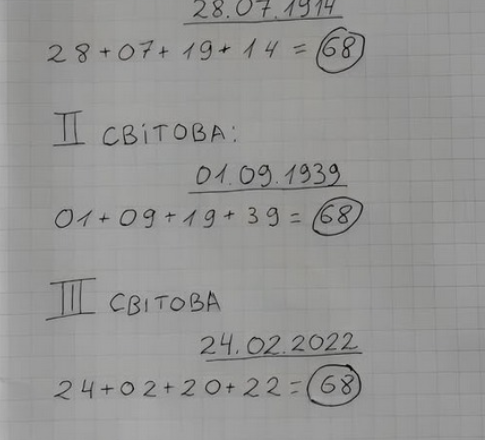 28.07.1914
28+07+19+14 = 68
II СВІТОВА:
01.09.1939
01+09+19+39= 68
III СВІТОВА
24.02.2022
24+02+20+22= 68